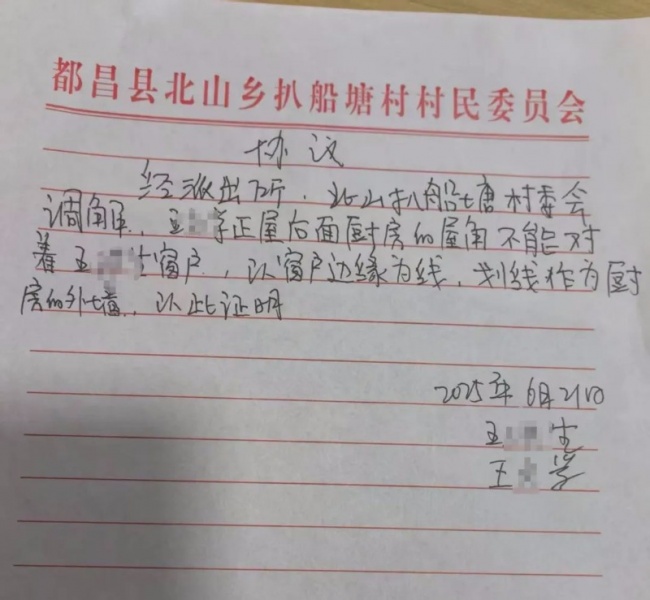 都昌县北山乡扒船塘村村民委员会
协议
经派出所、北山扒船塘村委会
调解、王学正屋后面厨房的屋角不能对
着王生窗户,以窗户边缘为线,划线作为厨
房的外墙,以此证明
2025年6月21日
王生
王学